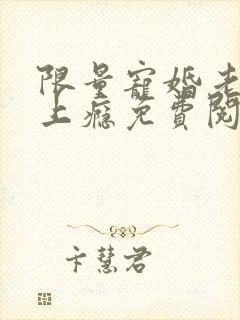 限量寵婚老
上癮免費閱
卞慧君